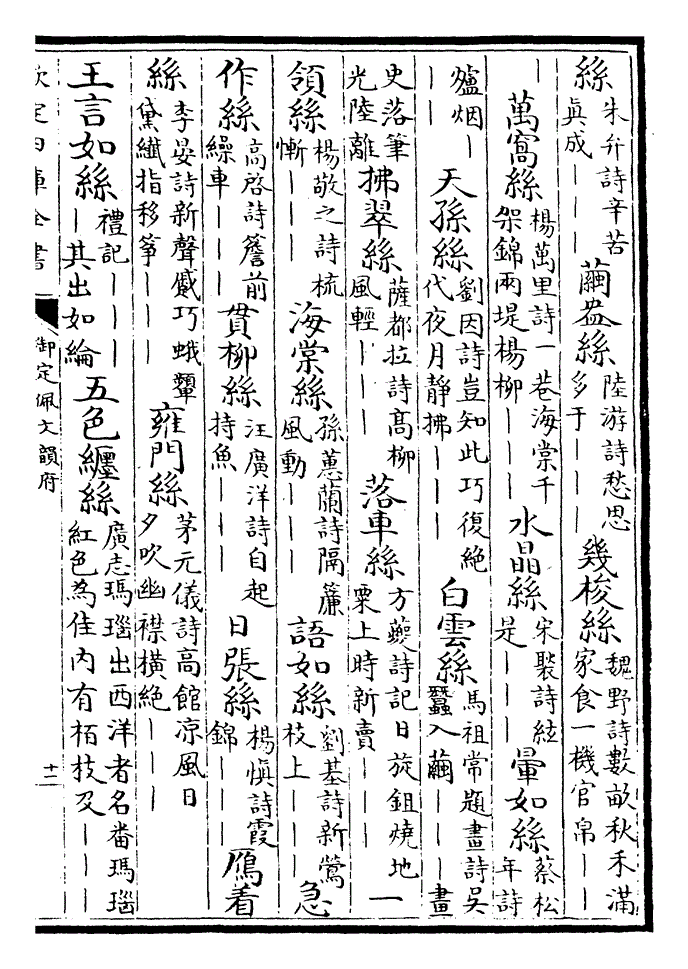 絲朱弁詩辛苦真成｜｜｜繭盎絲陸游詩愁思多于｜｜｜幾梭絲魏野詩數畝秋禾滿家食一機官帛｜｜
｜萬窩絲楊萬里詩一巷海棠千架錦兩堤楊柳｜｜｜水晶絲宋褧詩絃是｜｜｜暈如絲蔡松年詩
爐烟｜｜｜天孫絲劉因詩豈知此巧復絶代夜月靜拂｜｜｜白雲絲馬祖常題畫詩吳蠶入繭｜｜｜畫
史落筆光陸離拂翠絲薩都拉詩高柳風輕｜｜｜落車絲方夔詩記日旋鉏燒地粟上時新賣｜｜｜一
領絲楊敬之詩梳慚｜｜｜海棠絲孫蕙蘭詩隔簾風動｜｜｜語如絲劉基詩新鶯枝上｜｜｜急
作絲高啓詩簷前繰車｜｜｜貫柳絲汪廣洋詩自起持魚｜｜｜日張絲楊慎詩霞錦｜｜｜鴈着
絲李晏詩新聲蹙巧蛾顰黛纖指移箏｜｜｜雍門絲茅元儀詩高館凉風日夕吹幽襟橫絶｜｜｜
王言如絲禮記｜｜｜｜其出如綸五色纏絲廣志瑪瑙出西洋者名番瑪瑙紅色為佳内有栢枝及｜｜｜
欽定四庫全書
御定佩文韻府
十二